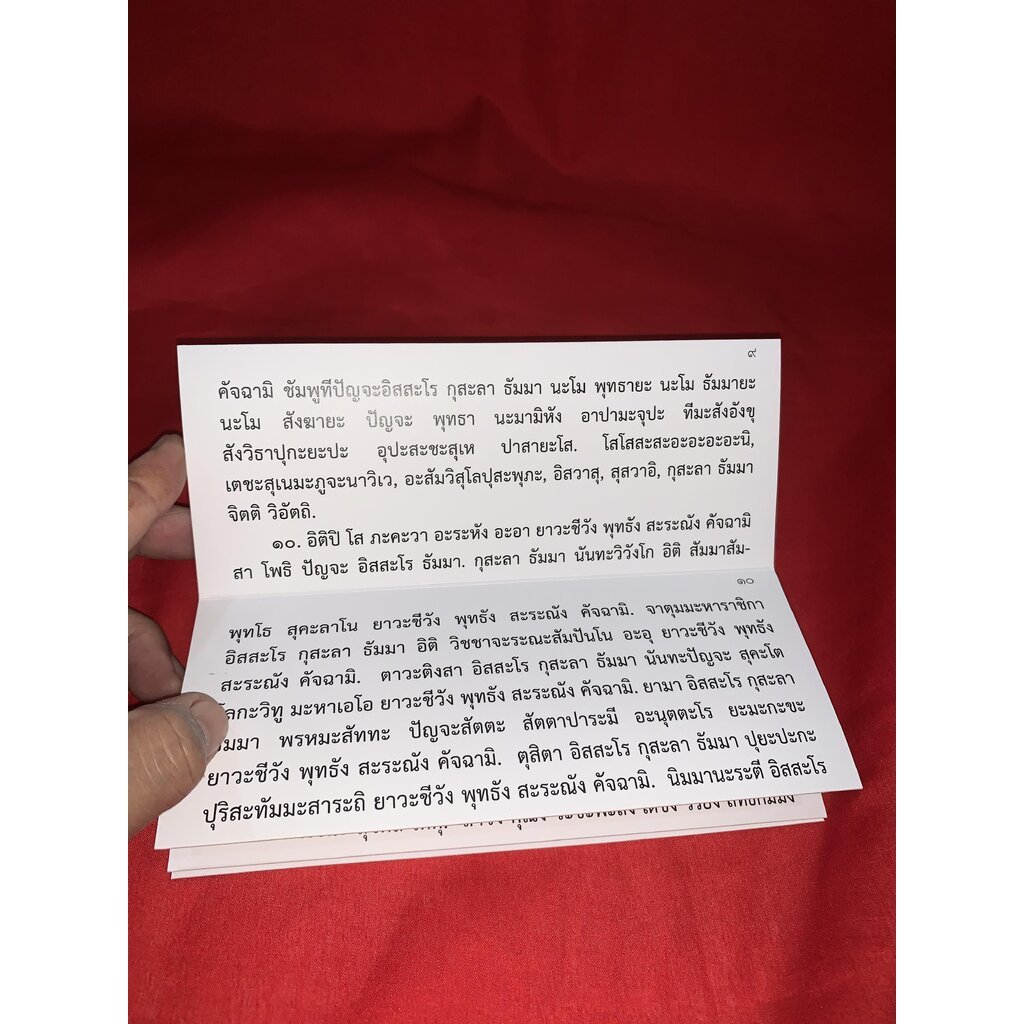 ๙
คัจฉามิ ชัมพูทีปัญจะอิสสะโร กุสะลา ธัมมา นะโม พุทธายะ นะโม ธัมมายะ
นะโม สังฆายะ ปัญจะ พุทธา นะมามิหัง อาปามะจุปะ ทีมะสังอังขุ
สังวิธาปุกะยะปะ อุปะสะชะสุเห ปาสายะโส. โสโสสะสะอะอะอะอะนิ,
เตชะสุเนมะภูจะนาวิเว, อะสัมวิสุโลปุสะพุภะ, อิสวาสุ, สุสวาอิ, กุสะลา ธัมมา
จิตติ วิอัตถิ.
๑๐. อิติปิ โส ภะคะวา อะระหัง อะอา ยาวะชีวัง พุทธัง สะระณัง คัจฉามิ
สา โพธิ ปัญจะ อิสสะโร ธัมมา. กุสะลา ธัมมา นันทะวิวังโก อิติ สัมมาสัม-
๑๐
พุทโธ สุคะลาโน ยาวะชีวัง พุทธัง สะระณัง คัจฉามิ. จาตุมมะหาราชิกา
อิสสะโร กุสะลา ธัมมา อิติ วิชชาจะระณะสัมปันโน อะอุ ยาวะชีวัง พุทธัง
สะระณัง คัจฉามิ. ตาวะติงสา อิสสะโร กุสะลา ธัมมา นันทะปัญจะ สุคะโต
โลกะวิทู มะหาเอโอ ยาวะชีวัง พุทธัง สะระณัง คัจฉามิ. ยามา อิสสะโร กุสะลา
ธัมมา พรหมะสัททะ ปัญจะสัตตะ สัตตาปาระมี อะนุตตะโร ยะมะกะขะ
ยาวะชีวัง พุทธัง สะระณัง คัจฉามิ. ตุสิตา อิสสะโร กุสะลา ธัมมา ปุยะปะกะ
ปุริสะทัมมะสาระถิ ยาวะชีวัง พุทธัง สะระณัง คัจฉามิ. นิมมานะระตี อิสสะโร